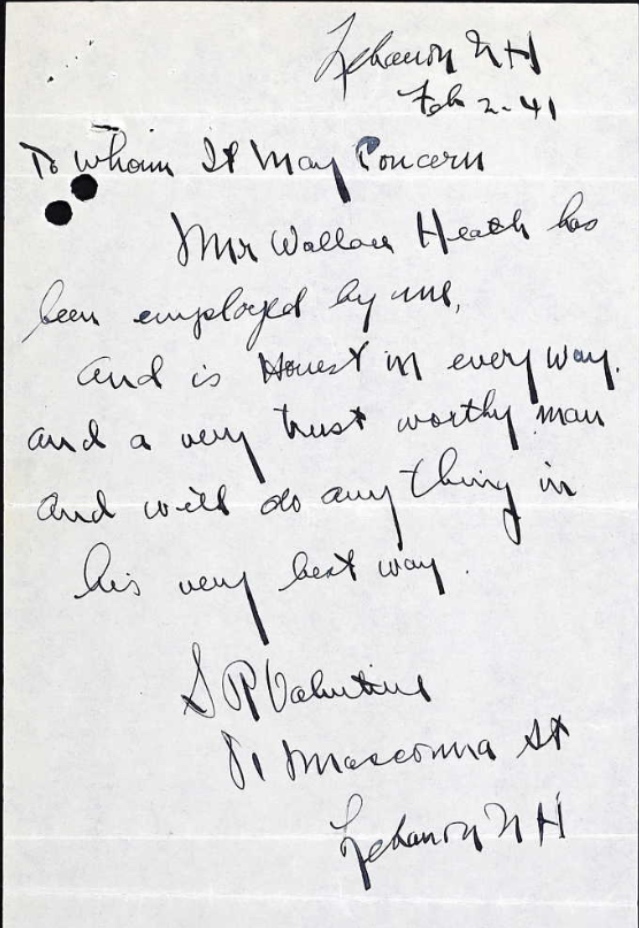 Lebanon NH
Feb 2-41
To Whom It May Concern
Mr Wallace Heath has
been employed by me,
and is Honest in every way.
and a very trust worthy man
and will do any thing in
his very best way.
S R Valentine
81 Mascoma St
Lebanon N H